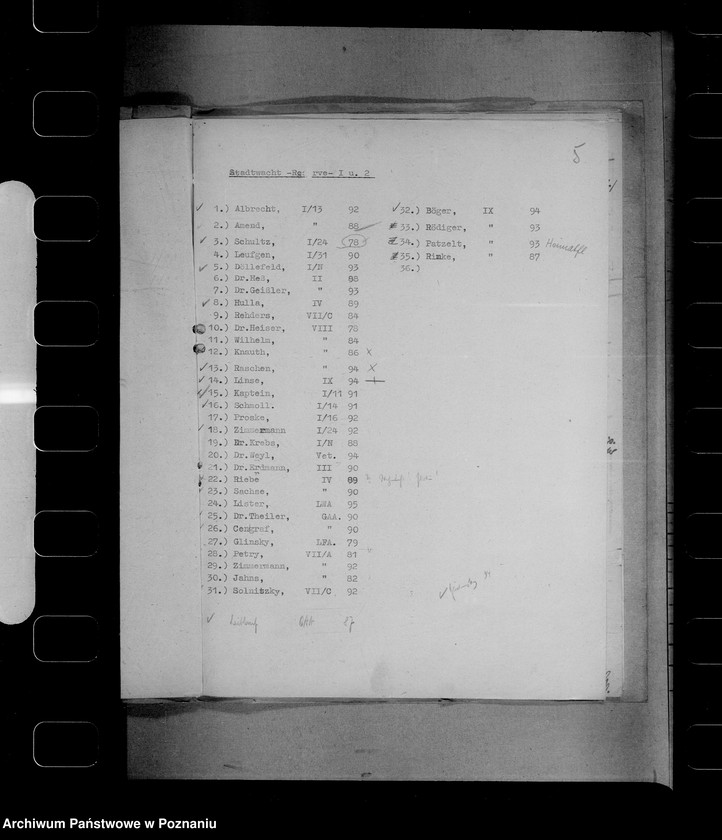 5
Stadtwacht -Re: rve- I u. 2
1.) Albrecht, I/13 92
2.) Amend, " 88
3.) Schultz, I/24 78
4.) Leufgen, I/31 90
5.) Döllefeld, I/N 93
6.) Dr.Heß, II 88
7.) Dr.Geißler, " 93
8.) Hulla, IV 89
9.) Rehders, VII/C 84
10.) Dr.Heiser, VIII 78
11.) Wilhelm, " 84
12.) Knauth, " 86 x
13.) Raschen, " 94 x
14.) Linse, IX 94
15.) Kaptein, I/11 91
16.) Schmoll. I/14 91
17.) Proske, I/16 92
18.) Zimmermann I/24 92
19.) Dr.Krebs, I/N 88
20.) Dr.Weyl, Vet. 94
21.) Dr.Erdmann, III 90
22.) Risbe IV 89
23.) Sachse, " 90
24.) Lister, LWA 95
25.) Dr.Theiler, GAA. 90
26.) Cengraf, " 90
27.) Glinsky, LFA. 79
28.) Petry, VII/A 81
29.) Zimmermann, " 92
30.) Jahns, " 82
31.) Solnitzky, VII/C 92
87
32.) Böger, IX 94
33.) Rödiger, " 93
34.) Patzelt, " 93
35.) Rinke, " 87
36.)
Archiwum Państwowe w Poznaniu